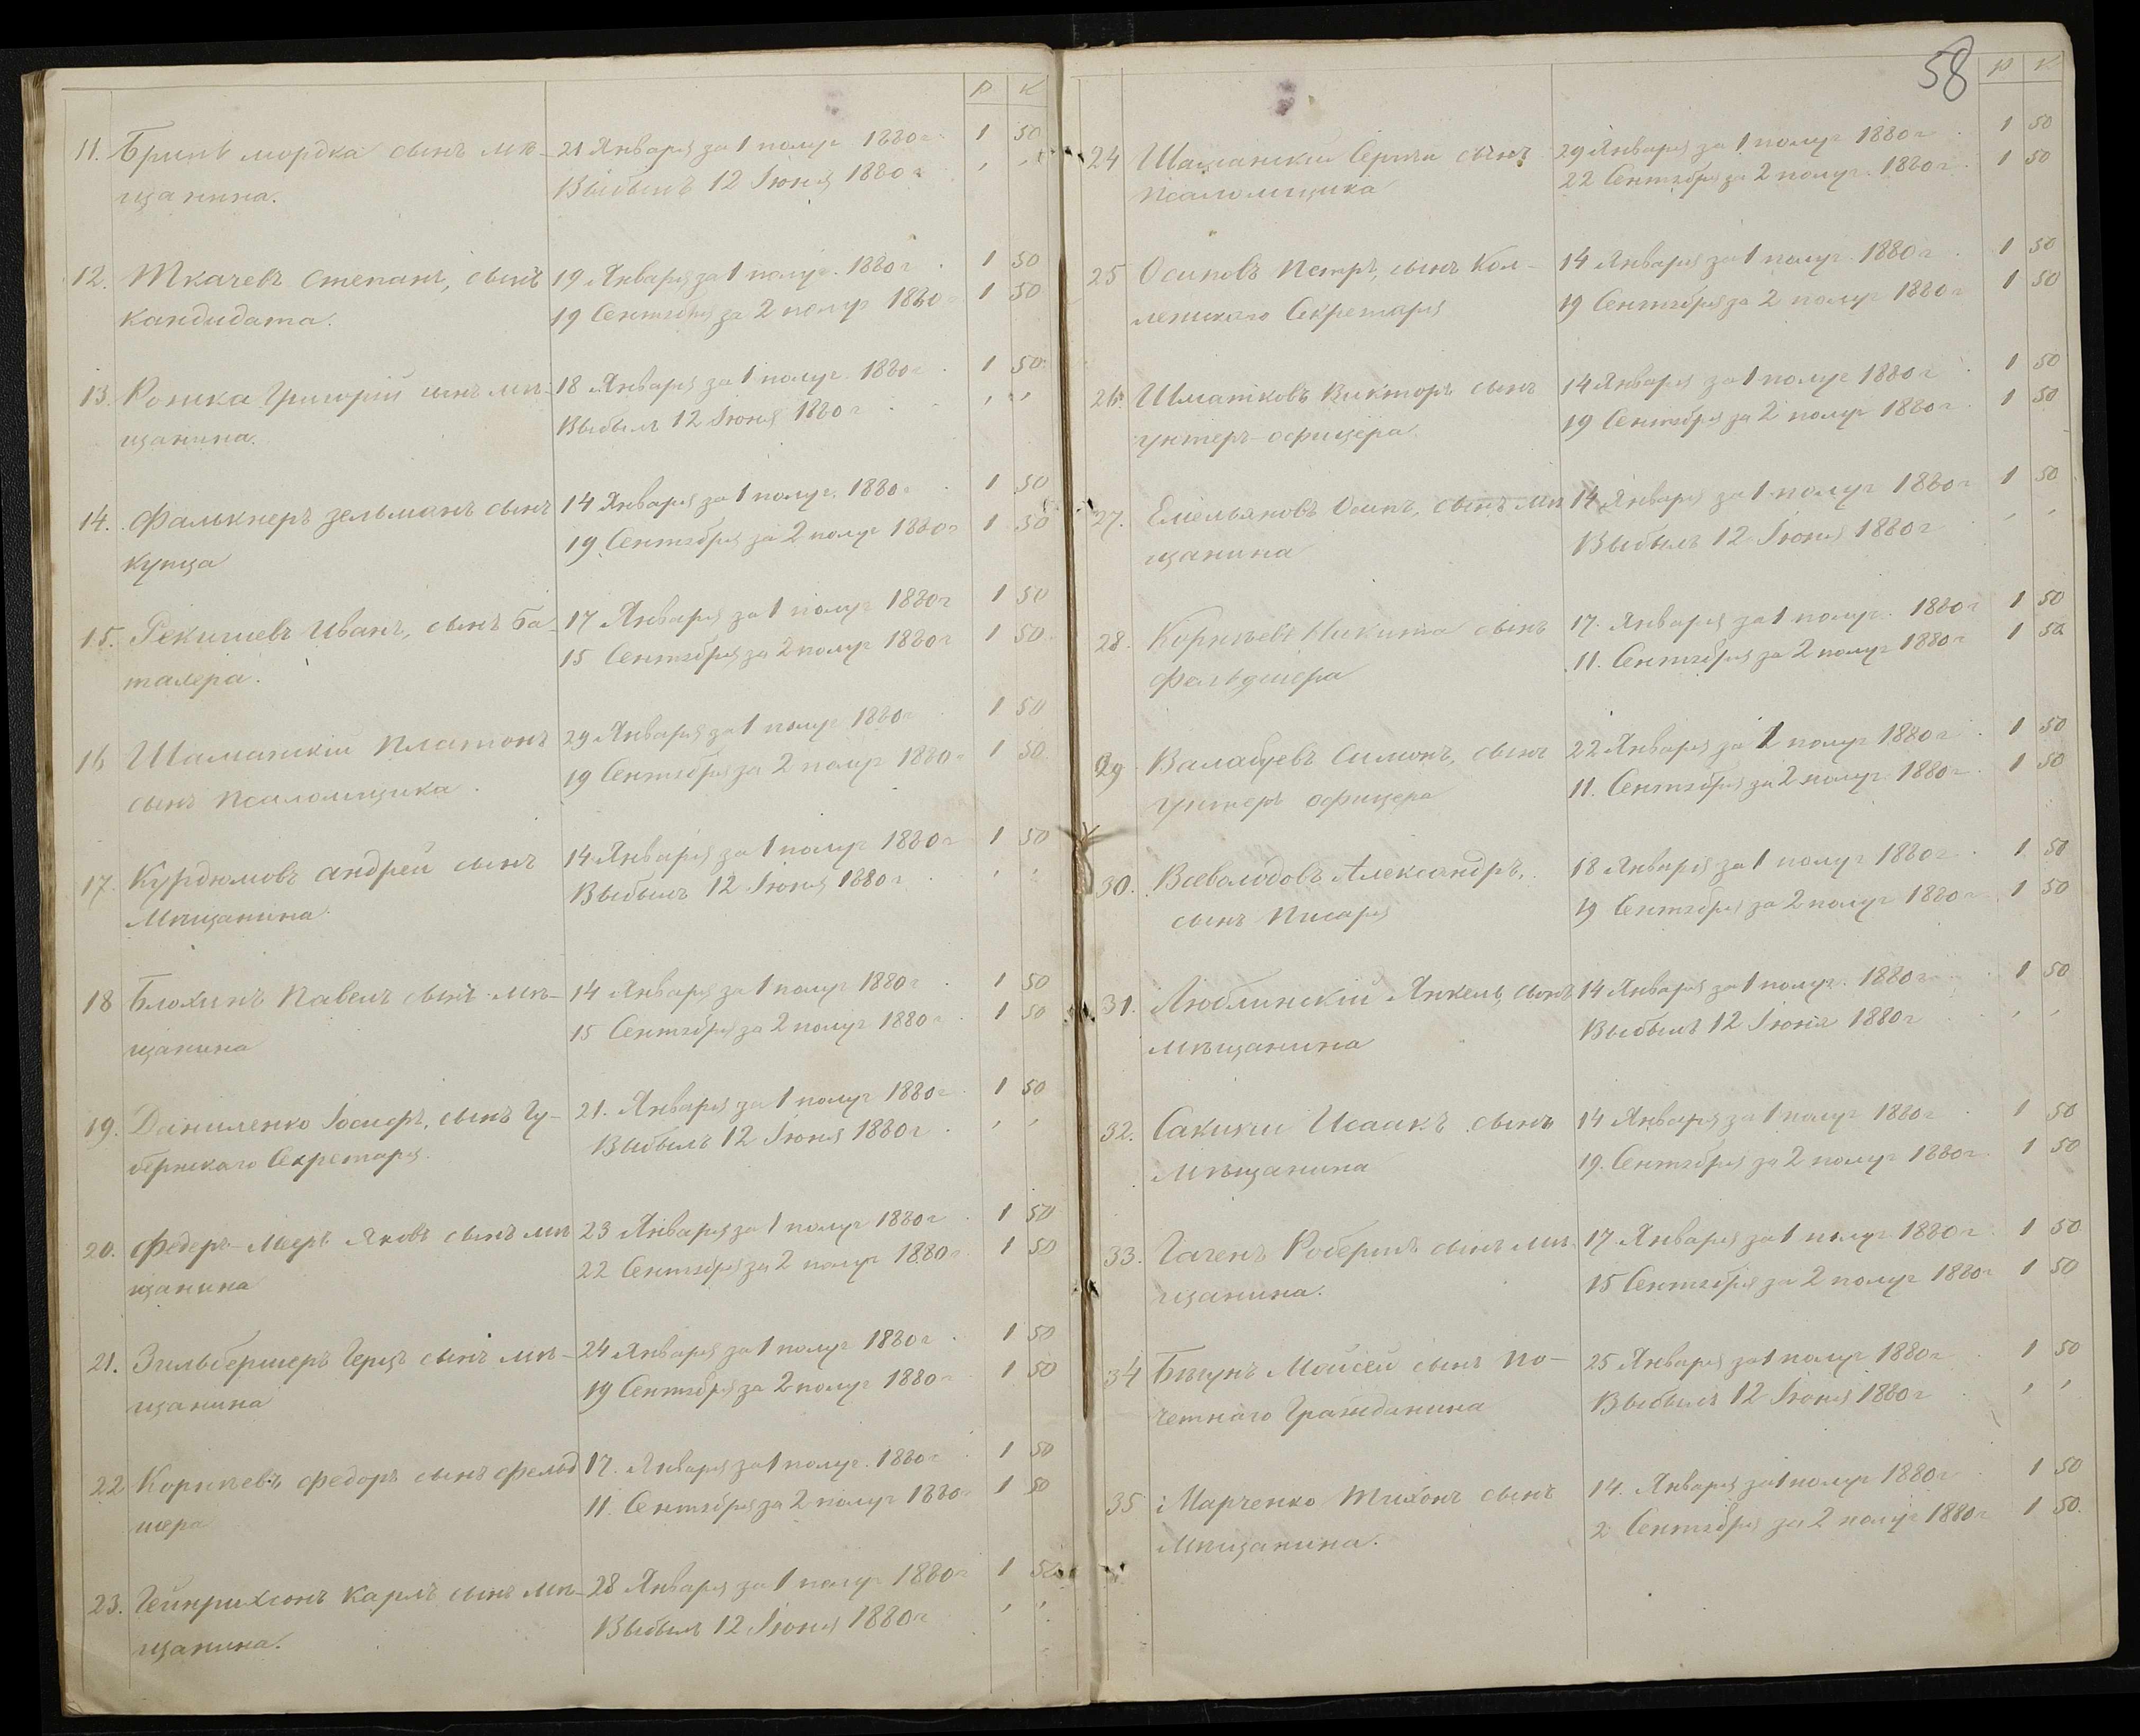 Р К
11. Бриль Мордка сынъ мѣ- 21 Января за 1 полуг 1880 г. 1 50
щанина. Выбылъ 12 Іюня 1880 г. " "
12. Ткачевъ Степанъ, сынъ 19 Января за 1 полуг. 1880 г. 1 50
кандидата. 19 Сентября за 2 полуг 1880 г 1 50
13. Григорій сынъ мѣ- 18 Января за 1 полуг. 1880 г. 1 50
щанина. Выбылъ 12 Іюня 1880 г. " "
14. Фалькнеръ Зельманъ сынъ 14 Января за 1 полуг. 1880 г. 1 50
купца 19 Сентября за 2 полуг 1880 г 1 50
15. Иванъ, сынъ ба- 17 Января за 1 полуг 1880 г 1 50
талера. 15 Сентября за 2 полуг 1880 г 1 50
16 Шаманскій Платонъ 29 Января за 1 полуг 1880 г. 1 50
сынъ псаломщика. 19 Сентября за 2 полуг 1880 г. 1 50
17. Курдюмовъ Андрей сынъ 14 Января за 1 полуг 1880 г 1 50
Мѣщанина. Выбылъ 12 Іюня 1880 г. " "
18 Блохинъ Павелъ сынъ мѣ- 14 Января за 1 полуг 1880 г. 1 50
щанина 15 Сентября за 2 полуг 1880 г. 1 50
19. Даниленко Іосифъ, сынъ Гу- 21. Января за 1 полуг 1880 г. 1 50
бернскаго Секретаря. Выбылъ 12 Іюня 1880 г. " "
20. Федеръ-Мееръ Яковъ сынъ мѣ 23 Января за 1 полуг 1880 г. 1 50
щанина 22 Сентября за 2 полуг 1880 г. 1 50
21. Зильбершеръ Герцъ сынъ мѣ- 24 Января за 1 полуг 1880 г. 1 50
щанина 19 Сентября за 2 полуг 1880 г. 1 50
22 Корнѣевъ Федоръ сынъ фельд 17. Января за 1 полуг. 1880 г. 1 50
шера 11. Сентября за 2 полуг 1880 г. 1 50
23. Гейнрихсонъ Карлъ сынъ мѣ- 28 Января за 1 полуг 1880 г 1 50
щанина. Выбылъ 12 Іюня 1880 г " "
58
Р К
24 Шаманскій Сергѣй сынъ 29 Января за 1 полуг 1880 г. 1 50
псаломщика 22 Сентября за 2 полуг. 1880 г. 1 50
25 Осиповъ Петръ, сынъ Кол- 14 Января за 1 полуг. 1880 г. 1 50
лежскаго Секретаря 19 Сентября за 2 полуг 1880 г 1 50
26. Шматковъ Викторъ сынъ 14 Января за 1 полуг 1880 г. 1 50
унтеръ-офицера. 19 Сентября за 2 полуг 1880 г. 1 50
27. Емельяновъ Осипъ, сынъ мѣ 14 Января за 1 полуг 1880 г 1 50
щанина Выбылъ 12 Іюня 1880 г " "
28. Корнѣевъ Никита сынъ 17. Января за 1 полуг. 1880 г 1 50
фельдшера 11. Сентября за 2 полуг 1880 г 1 50
29 Валабуевъ Симонъ, сынъ 22 Января за 1 полуг 1880 г. 1 50
унтеръ офицера 11. Сентября за 2 полуг 1880 г. 1 50
30. Всеволодовъ Александръ, 18 Января за 1 полуг 1880 г. 1 50
сынъ писаря 19 Сентября за 2 полуг 1880 г. 1 50
31. Люблинскій Янкель, сынъ 14 Января за 1 полуг. 1880 г. 1 50
мѣщанина Выбылъ 12 Іюня 1880 г " "
32. Исаакъ сынъ 14 Января за 1 полуг 1880 г. 1 50
мѣщанина 19. Сентября за 2 полуг 1880 г. 1 50
33. Гагенъ Робертъ сынъ мѣ- 17. Января за 1 полуг 1880 г. 1 50
щанина. 15 Сентября за 2 полуг 1880 г 1 50
34 Бѣгунъ Мойсей сынъ по- 25 Января за 1 полуг 1880 г. 1 50
четнаго Гражданина Выбылъ 12 Іюня 1880 г. " "
35 Марченко Тихонъ сынъ 14. Января за 1 полуг 1880 г. 1 50
Мѣщанина. 2 Сентября за 2 полуг 1880 г 1 50.